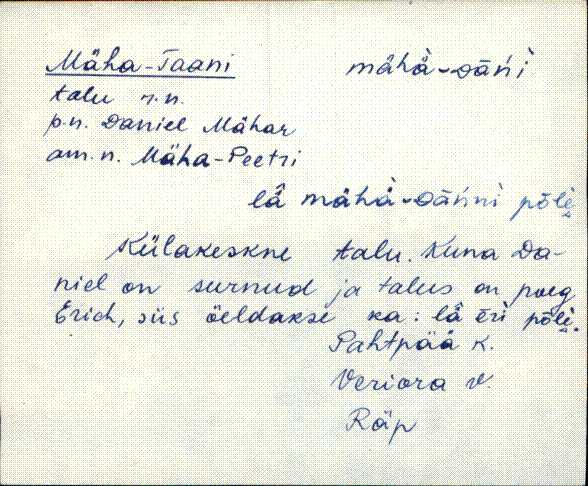 Mäha-Taani mähä-dāńi
talu r.n.
p.n. Daniel Mähar
am.n. Mäha-Peetri
lǟ mähä-dāńni põlè
Külakeskne talu. Kuna Da-
niel on surnud ja talus on poeg
Erich, siis öeldakse ka: lǟ ēri põlè.
Pahtpää k.
Veriora v.
Räp